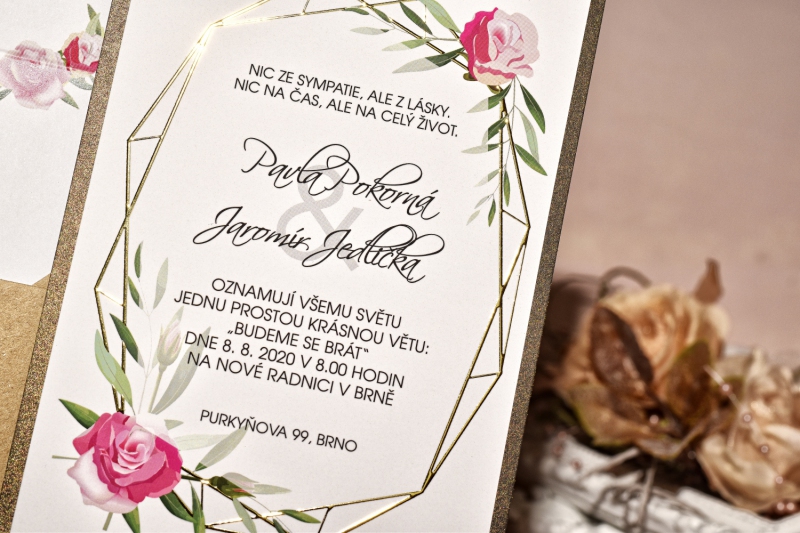 NIC ZE SYMPATIE, ALE Z LÁSKY.
NIC NA ČAS, ALE NA CELÝ ŽIVOT.
Pavla Pokorná
&
Jaromír Jedlička
OZNAMUJÍ VŠEMU SVĚTU
JEDNU PROSTOU KRÁSNOU VĚTU:
„BUDEME SE BRÁT“
DNE 8. 8. 2020 V 8.00 HODIN
NA NOVÉ RADNICI V BRNĚ
PURKYŇOVA 99, BRNO